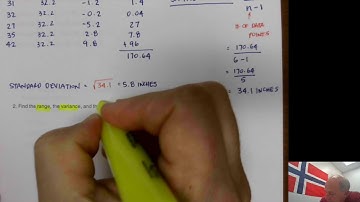 31 32.2 -1.2 1.4
32 32.2 -0.2 0.04
27 32.2 -5.2 27
35 32.2 2.8 7.8
42 32.2 9.8 +96
170.64
n-1
# OF DATA
POINTS
= 170.64
6-1
= 170.64
5
= 34.1 INCHES
STANDARD DEVIATION = √34.1 = 5.8 INCHES
2. Find the range, the variance, and th